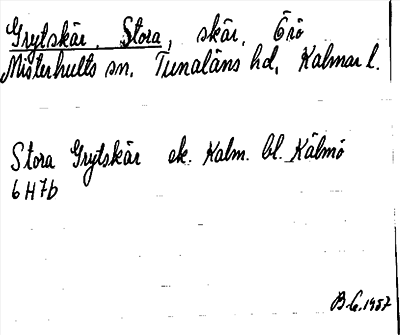 Grytskär, Stora, skär, Örö
Misterhults sn, Tunaläns hd, Kalmar l.
Stora Grytskär ek. Kalm. bl. Kälmö
6H7b
B.G. 1957